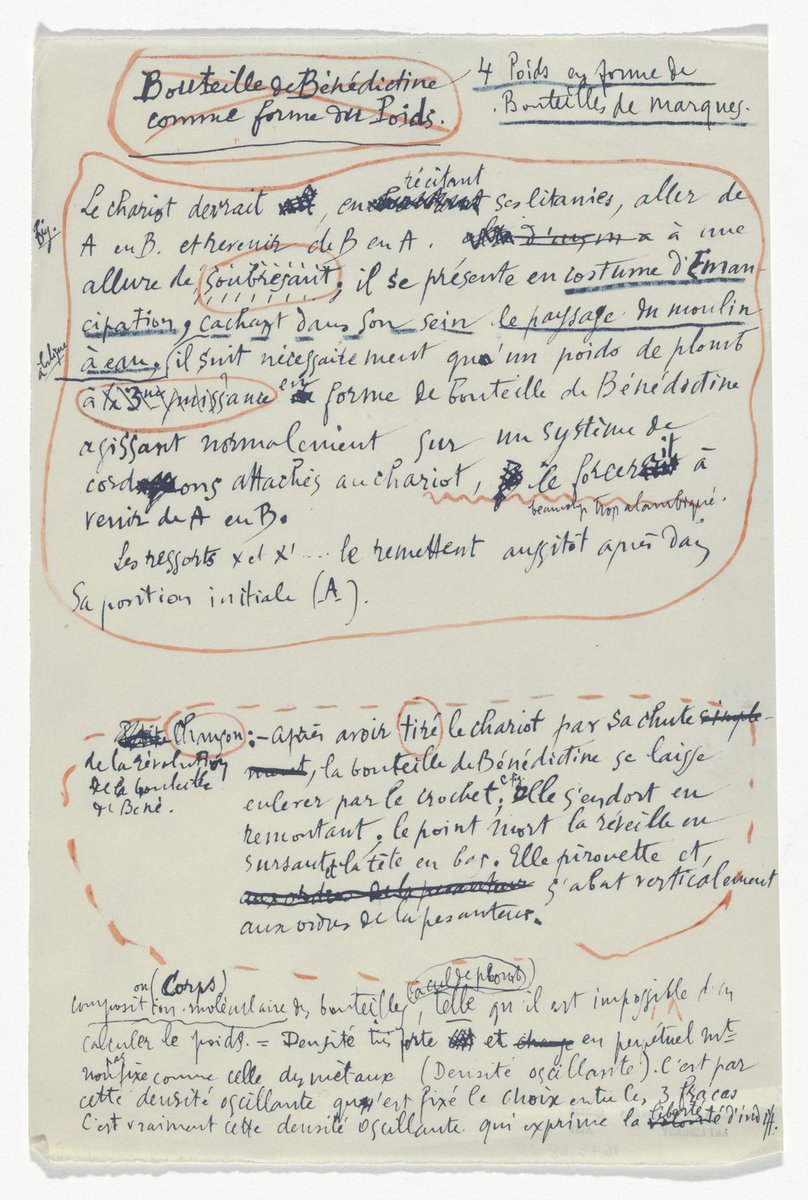 Bouteille de Bénédictine
comme forme du Poids.
4 Poids en forme de
Bouteilles de marques.
récitant
Le chariot devrait , en ses litanies, aller de
A en B. et revenir de B en A. d'un à une
allure de soubresaut; il se présente en costume d'Éman-
cipation, cachant dans son sein le paysage du moulin
à eau. (il suit nécessairement qu'un poids de plomb
à la 3me puissance en forme de bouteille de Bénédictine
agissant normalement sur un système de
cordons attachés au chariot, le forcerait à
beaucoup trop alambiqué.
venir de A en B.
Les ressorts x et x' ... le remettent aussitôt après dans
sa position initiale (A).
Chanson: - après avoir tiré le chariot par sa chute simple-
de la révolution
ment, la bouteille de Bénédictine se laisse
de la bouteille
enlever par le crochet; elle s'endort en
de Béné.
remontant; le point mort la réveille en
sursaut et la tête en bas. Elle pirouette et,
aux ordres de la pesanteur s'abat verticalement
aux ordres de la pesanteur.
ou (Corps) (à cul de plomb)
composition moléculaire des bouteilles, telle qu'il est impossible d'en
calculer le poids. = Densité très forte et en perpétuel mvt
non pas fixe comme celle des métaux (Densité oscillante). C'est par
cette densité oscillante qu'est fixé le choix entre les 3 fracas
liberté
C'est vraiment cette densité oscillante qui exprime la volonté d'indiff.